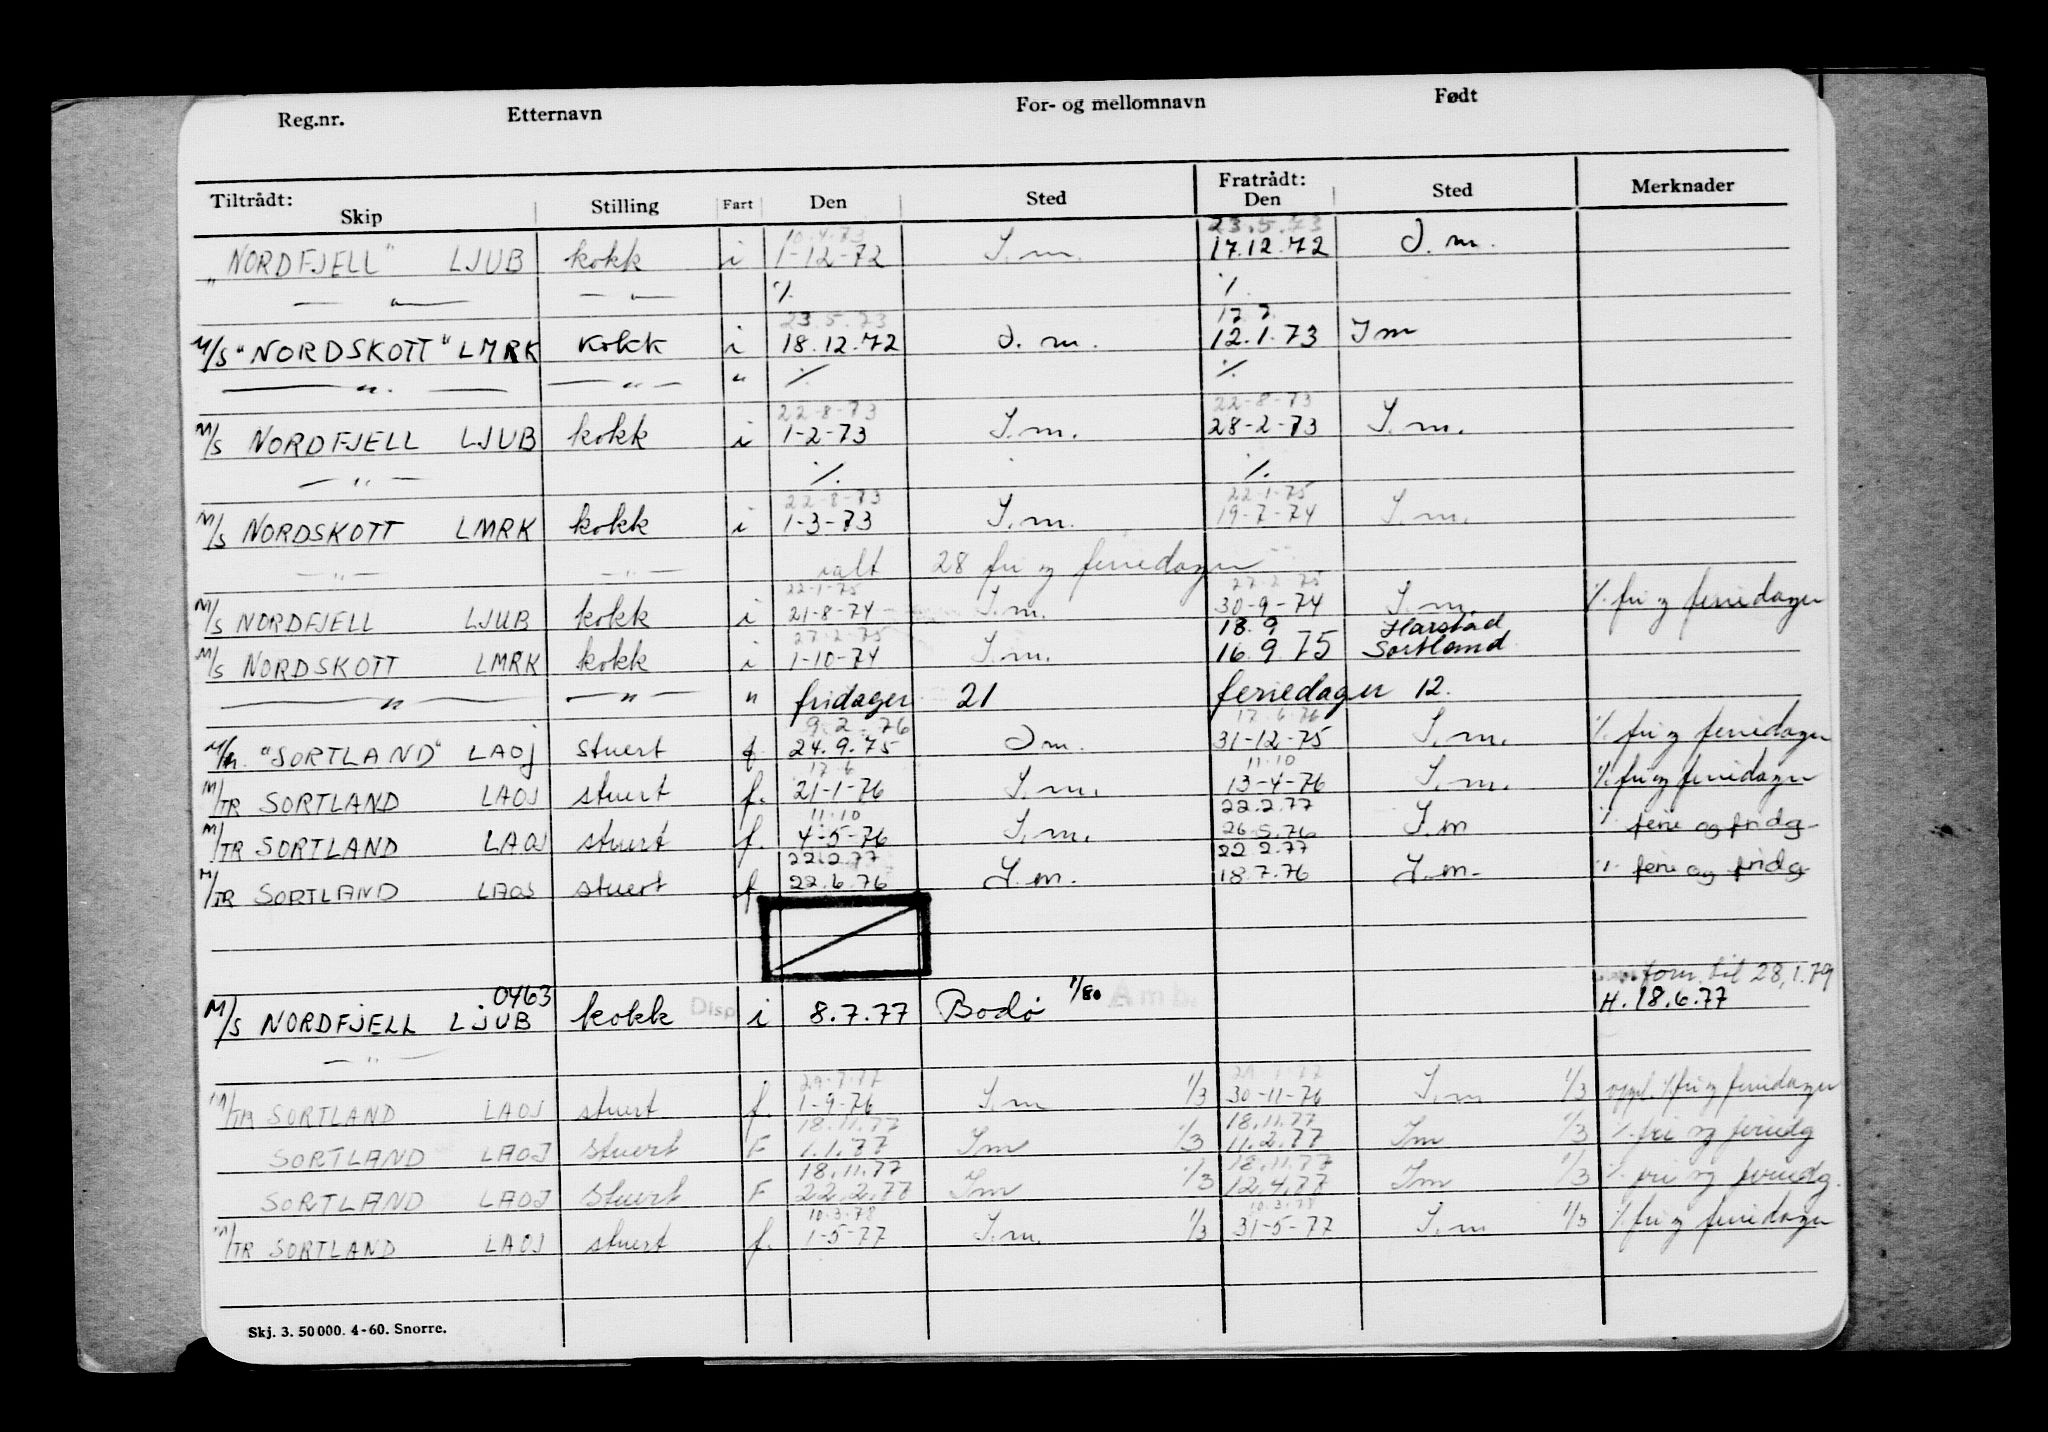 Reg.nr. Etternavn For- og mellomnavn Født
Tiltrådt: Fratrådt:
Skip Stilling Fart Den Sted Den Sted Merknader
10.4.73 23.5.73
"NORDFJELL" LJUB kokk i 1-12-72 I.m. 17.12.72 I.m.
— " — — " — % %
23.5.73 17.7.
M/S "NORDSKOTT" LMRK kokk i 18.12.72 I.m. 12.1.73 I m
— " — — " — " % %
22-8-73 22-8-73
M/S NORDFJELL LJUB kokk i 1-2-73 I.m. 28-2-73 I.m.
— " — % %
22-8-73 22-1-75
M/S NORDSKOTT LMRK kokk i 1-3-73 I.m. 19-7-74 I.m.
— " — — " — ialt 28 fri og feriedager
22-1-75 27-2-75
M/S NORDFJELL LJUB kokk i 21-8-74 I.m. 30-9-74 I.m. % fri og feriedager
27-2-75 18.9 Harstad
M/S NORDSKOTT LMRK kokk i 1-10-74 I.m. 16.9.75 Sortland
— " — — " — " fridager 21 feriedager 12.
9.2.76 17.6.76
"SORTLAND" LAOJ stuert f 24.9.75 I m. 31-12-75 I.m. % fri og feriedager
17.6 11.10
M/TR SORTLAND LAOJ stuert f. 21-1-76 I.m. 13-4-76 I.m. % fri og feriedager
11.10 22.2.77
M/TR SORTLAND LAOJ stuert f. 4-5-76 I.m. 26.5.76 I.m % ferie og fridg
22.2.77 22.2.77
M/TR SORTLAND LAOJ stuert f 22.6.76 I.m. 18.7.76 I.m. % ferie og fridg
forn. til 28.1.79
0463 1/80 H. 18.6.77
M/S NORDFJELL LJUB kokk Disp i 8.7.77 Bodø Amb.
— " —
29.7.77 29.7.77
M/TR SORTLAND LAOJ stuert f. 1-9-76 I.m 1/3 30-11-76 I.m 1/3 oppl. % fri og feriedager
18.11.77 18.11.77
SORTLAND LAOJ stuert F 1.1.77 Im 1/3 11.2.77 Im 1/3 % fri og feriedg
18.11.77 18.11.77
SORTLAND LAOJ stuert F 22.2.77 Im 1/3 12.4.77 Im 1/3 % fri og feriedg.
10.3.78 10.3.78
M/TR SORTLAND LAOJ stuert f. 1-5-77 I.m. 1/3 31-5-77 I.m 1/3 % fri og feriedager
Skj. 3. 50000. 4-60. Snorre.